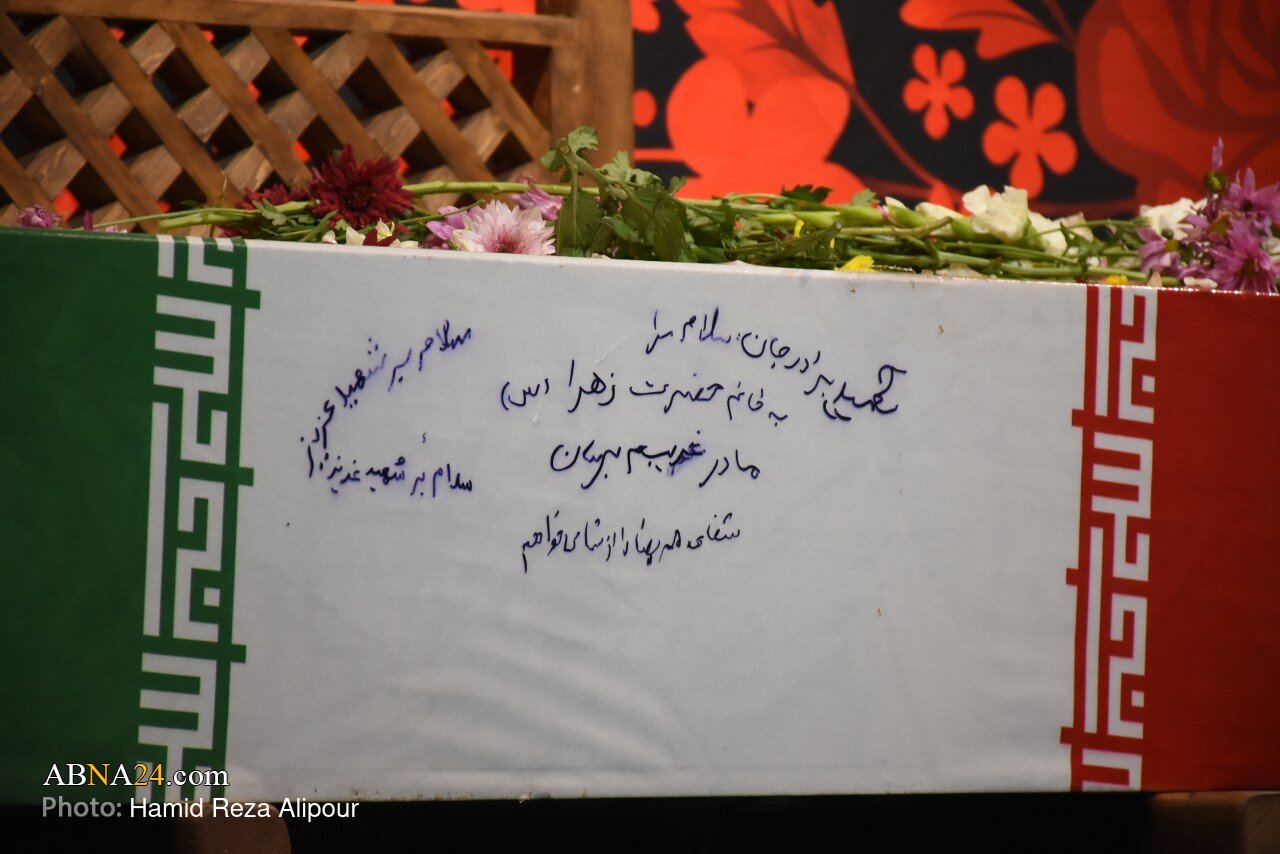 شهید برادر جان، سلام مرا
به خانم حضرت زهرا (س)
مادر غریبم برسان
شفای همه را از شما می خواهم
سلام بر شهید عزیز
سلام بر شهید عزیز
ABNA24.com
Photo: Hamid Reza Alipour